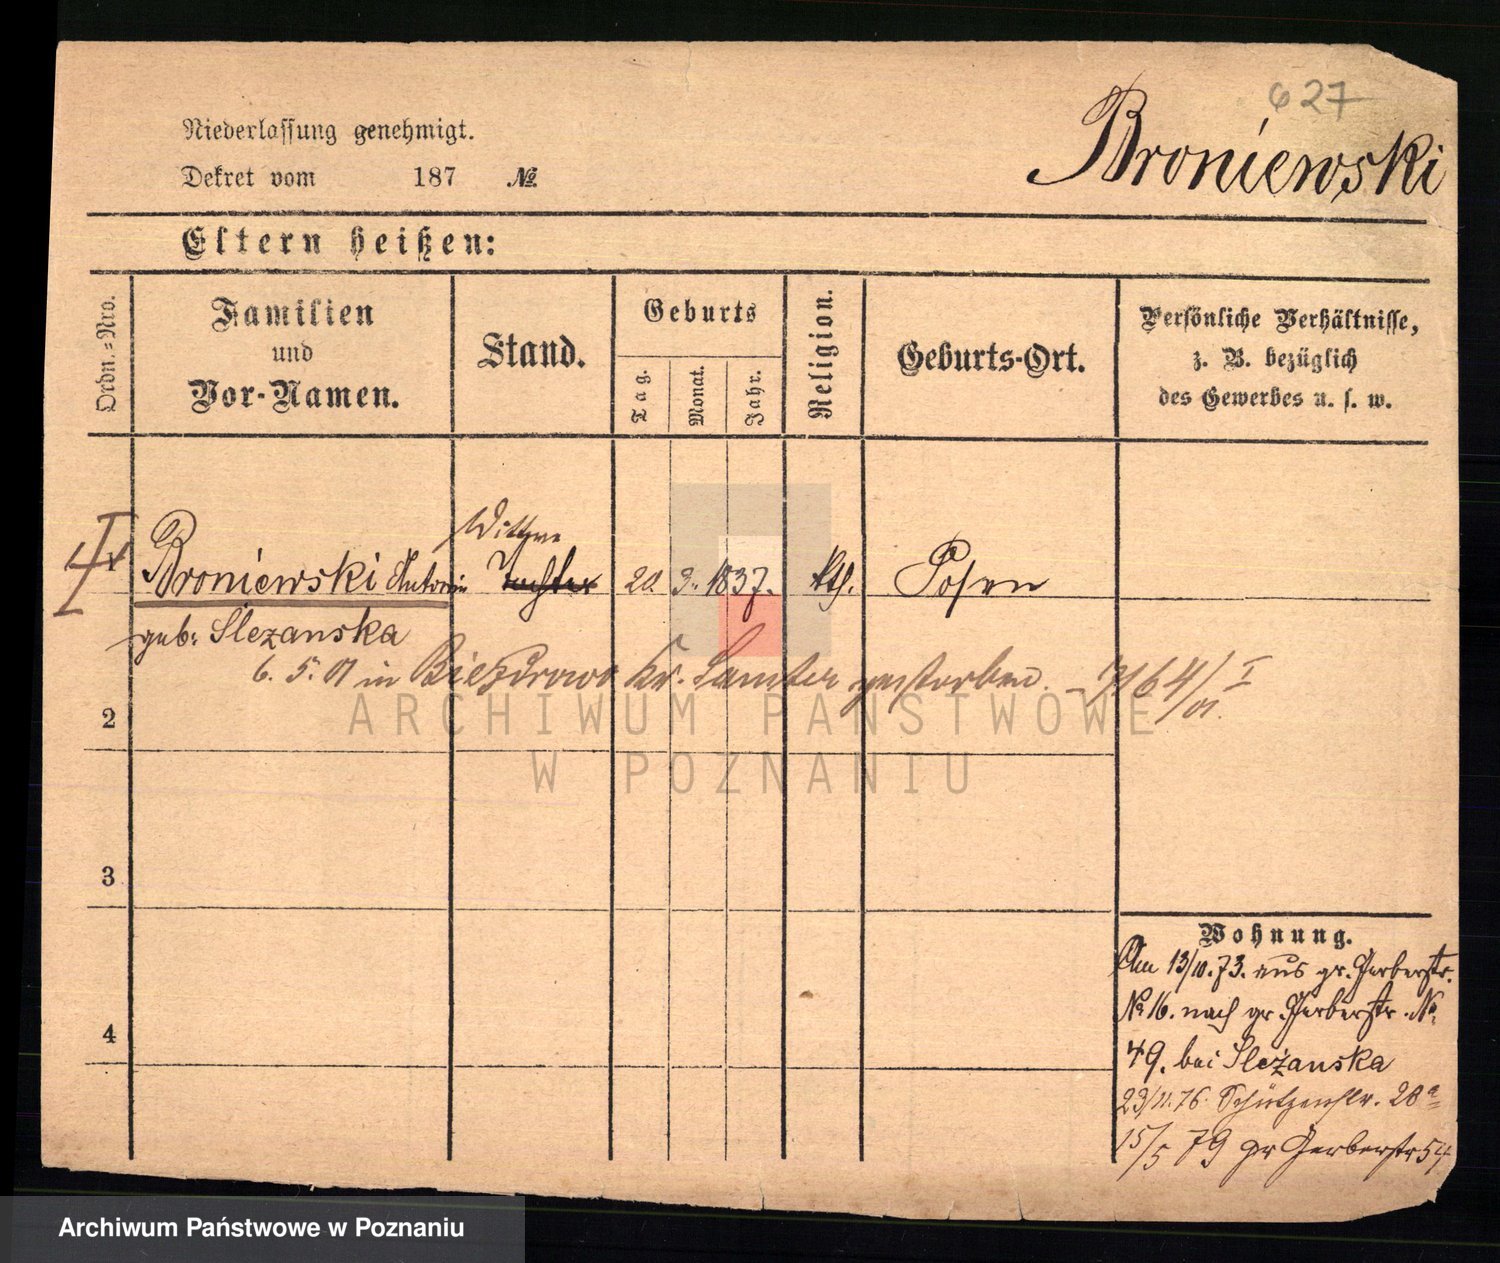 627
Broniewski
Niederlassung genehmigt.
Dekret vom 187 №
Eltern heißen:
Ordn.=Nro.
Familien
und
Vor-Namen.
Stand.
Geburts
Tag.
Monat.
Jahr.
Religion.
Geburts-Ort.
Persönliche Verhältnisse,
z. B. bezüglich
des Gewerbes u. s. w.
Wittwe
Broniewski Antonin 20. 3. 1837. kth. Posen
geb: Slezanska
6. 5. 01 in Biezdrowo Kr. Samter gestorben. 7164/01. I
2
3
4
Wohnung.
Am 13/10.73. aus gr. Gerberstr.
№ 16. nach gr. Gerberstr. №
49. bei Sleżanska
23/11.76. Schützenstr. 28a
15/5 79 gr Gerberstr 54
ARCHIWUM PAŃSTWOWE
W POZNANIU
Archiwum Państwowe w Poznaniu